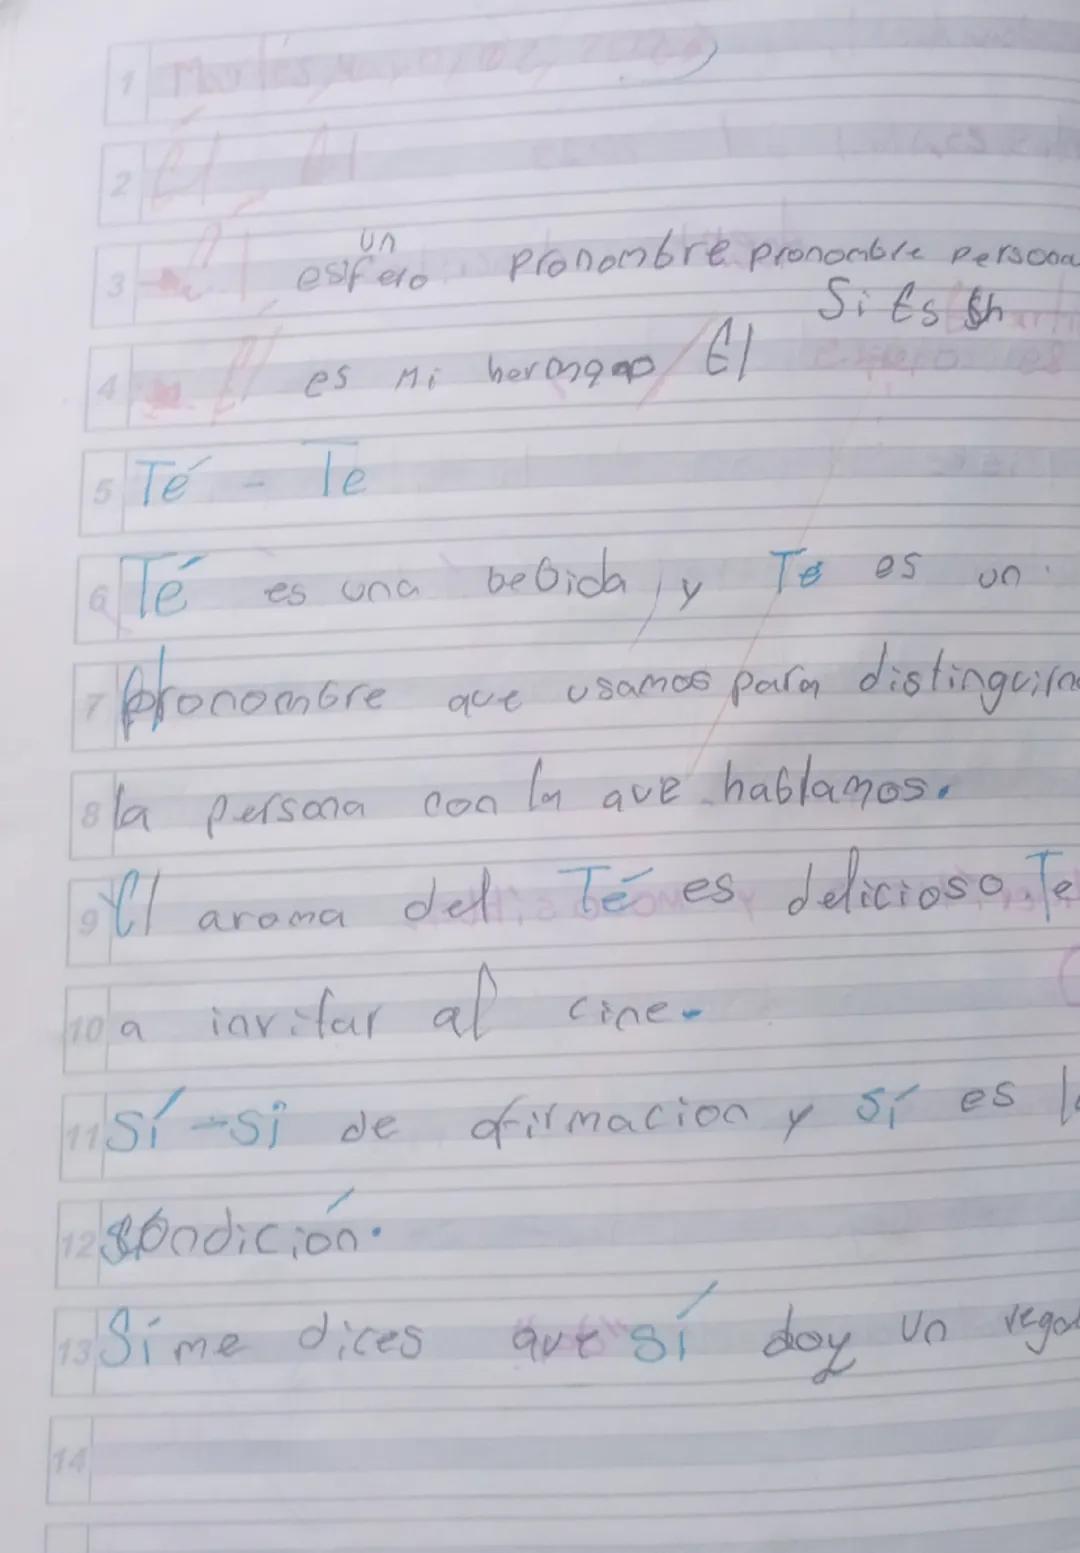 1
2 Él El
3 un
esfero pronombre pronombre persona
Si Es
4 es Mi hermano El
5 Té - Te
6 Té es una bebida, y Te es un
7 pronombre que usamos para distinguir
8 la persona con la que hablamos.
9 El aroma del Té es delicioso Te
10 a invitar al cine.
11 Sí - si de afirmacion y sí es
12 condición.
13 Si me dices que sí doy un
14